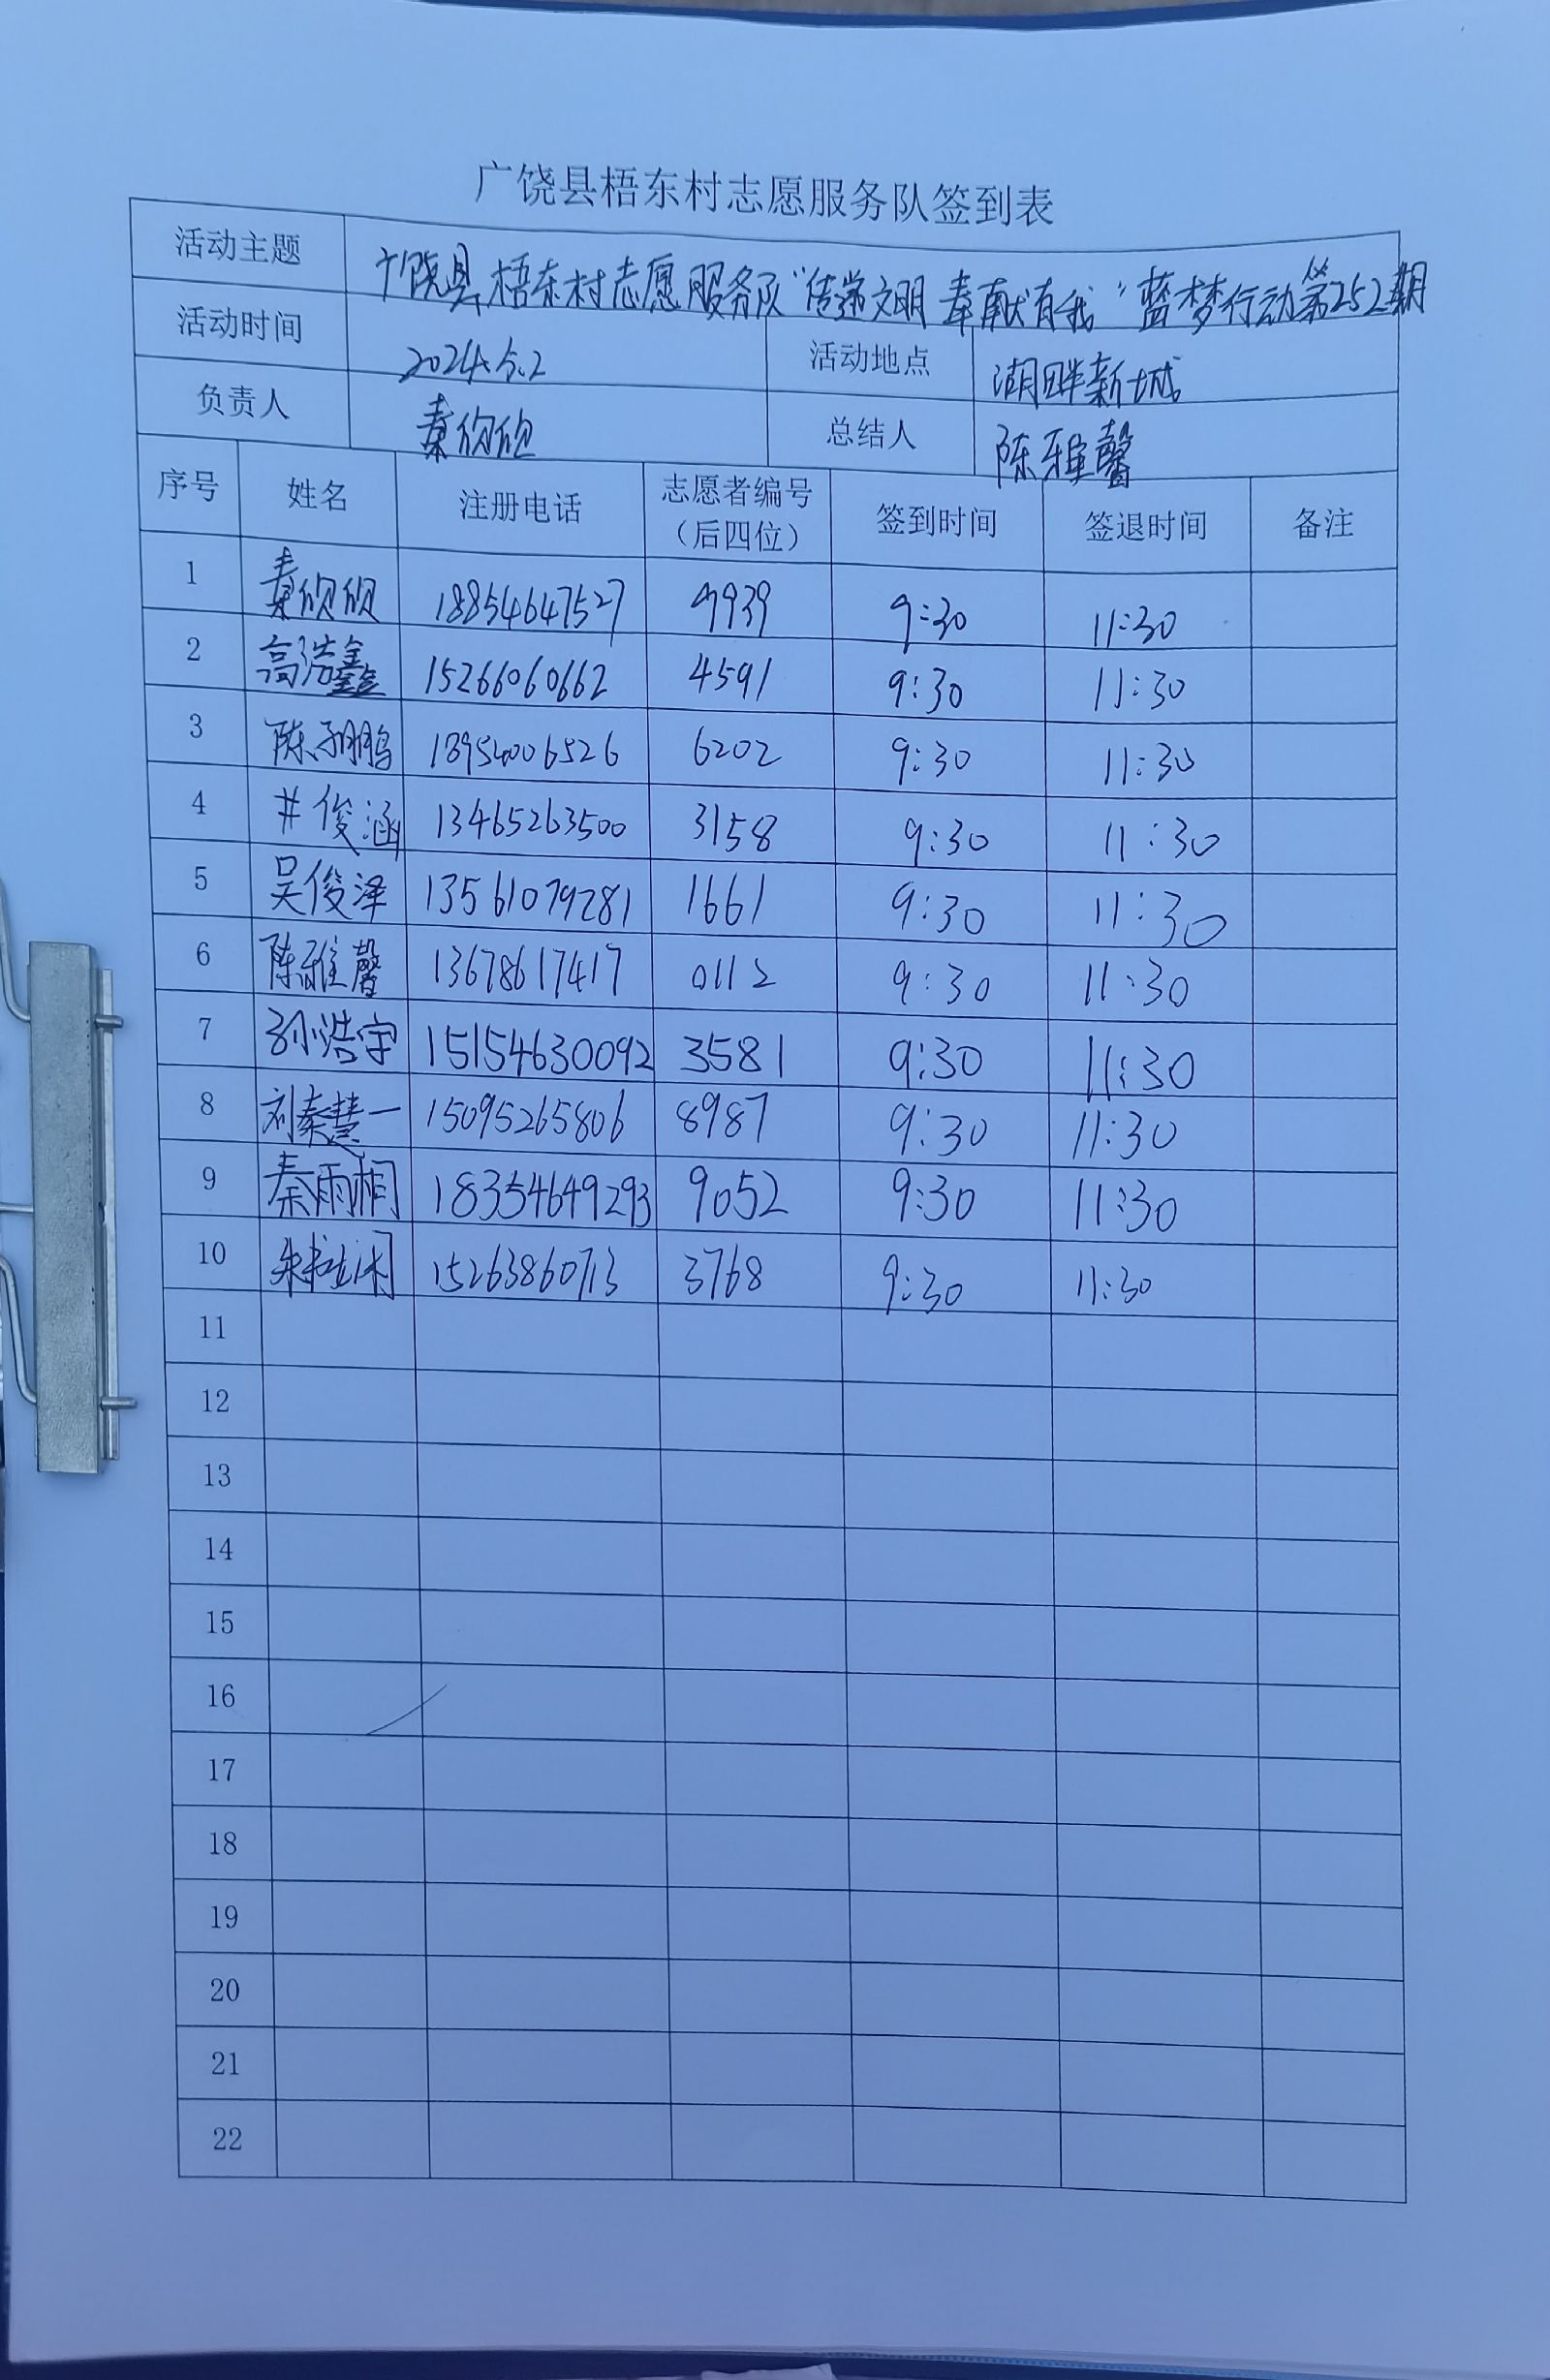 广饶县梧东村志愿服务队签到表
活动主题 广饶县梧东村志愿服务队“传递文明 奉献有我”蓝梦行动第252期
活动时间 2024.5.2 活动地点 湖畔新城
负责人 秦欣欣 总结人 陈雅馨
序号 姓名 注册电话 志愿者编号（后四位） 签到时间 签退时间 备注
1 秦欣欣 18854647527 9939 9:30 11:30
2 高浩鑫 15266060662 4591 9:30 11:30
3 陈鹏 18954006526 6202 9:30 11:30
4 井俊涵 13465263500 3158 9:30 11:30
5 吴俊泽 13561079281 1661 9:30 11:30
6 陈雅馨 13678617417 0112 9:30 11:30
7 孙浩宇 15154630092 3581 9:30 11:30
8 刘秦慧一 15095265806 8987 9:30 11:30
9 秦雨桐 18354649293 9052 9:30 11:30
10 朱 15263860713 3768 9:30 11:30
11
12
13
14
15
16
17
18
19
20
21
22